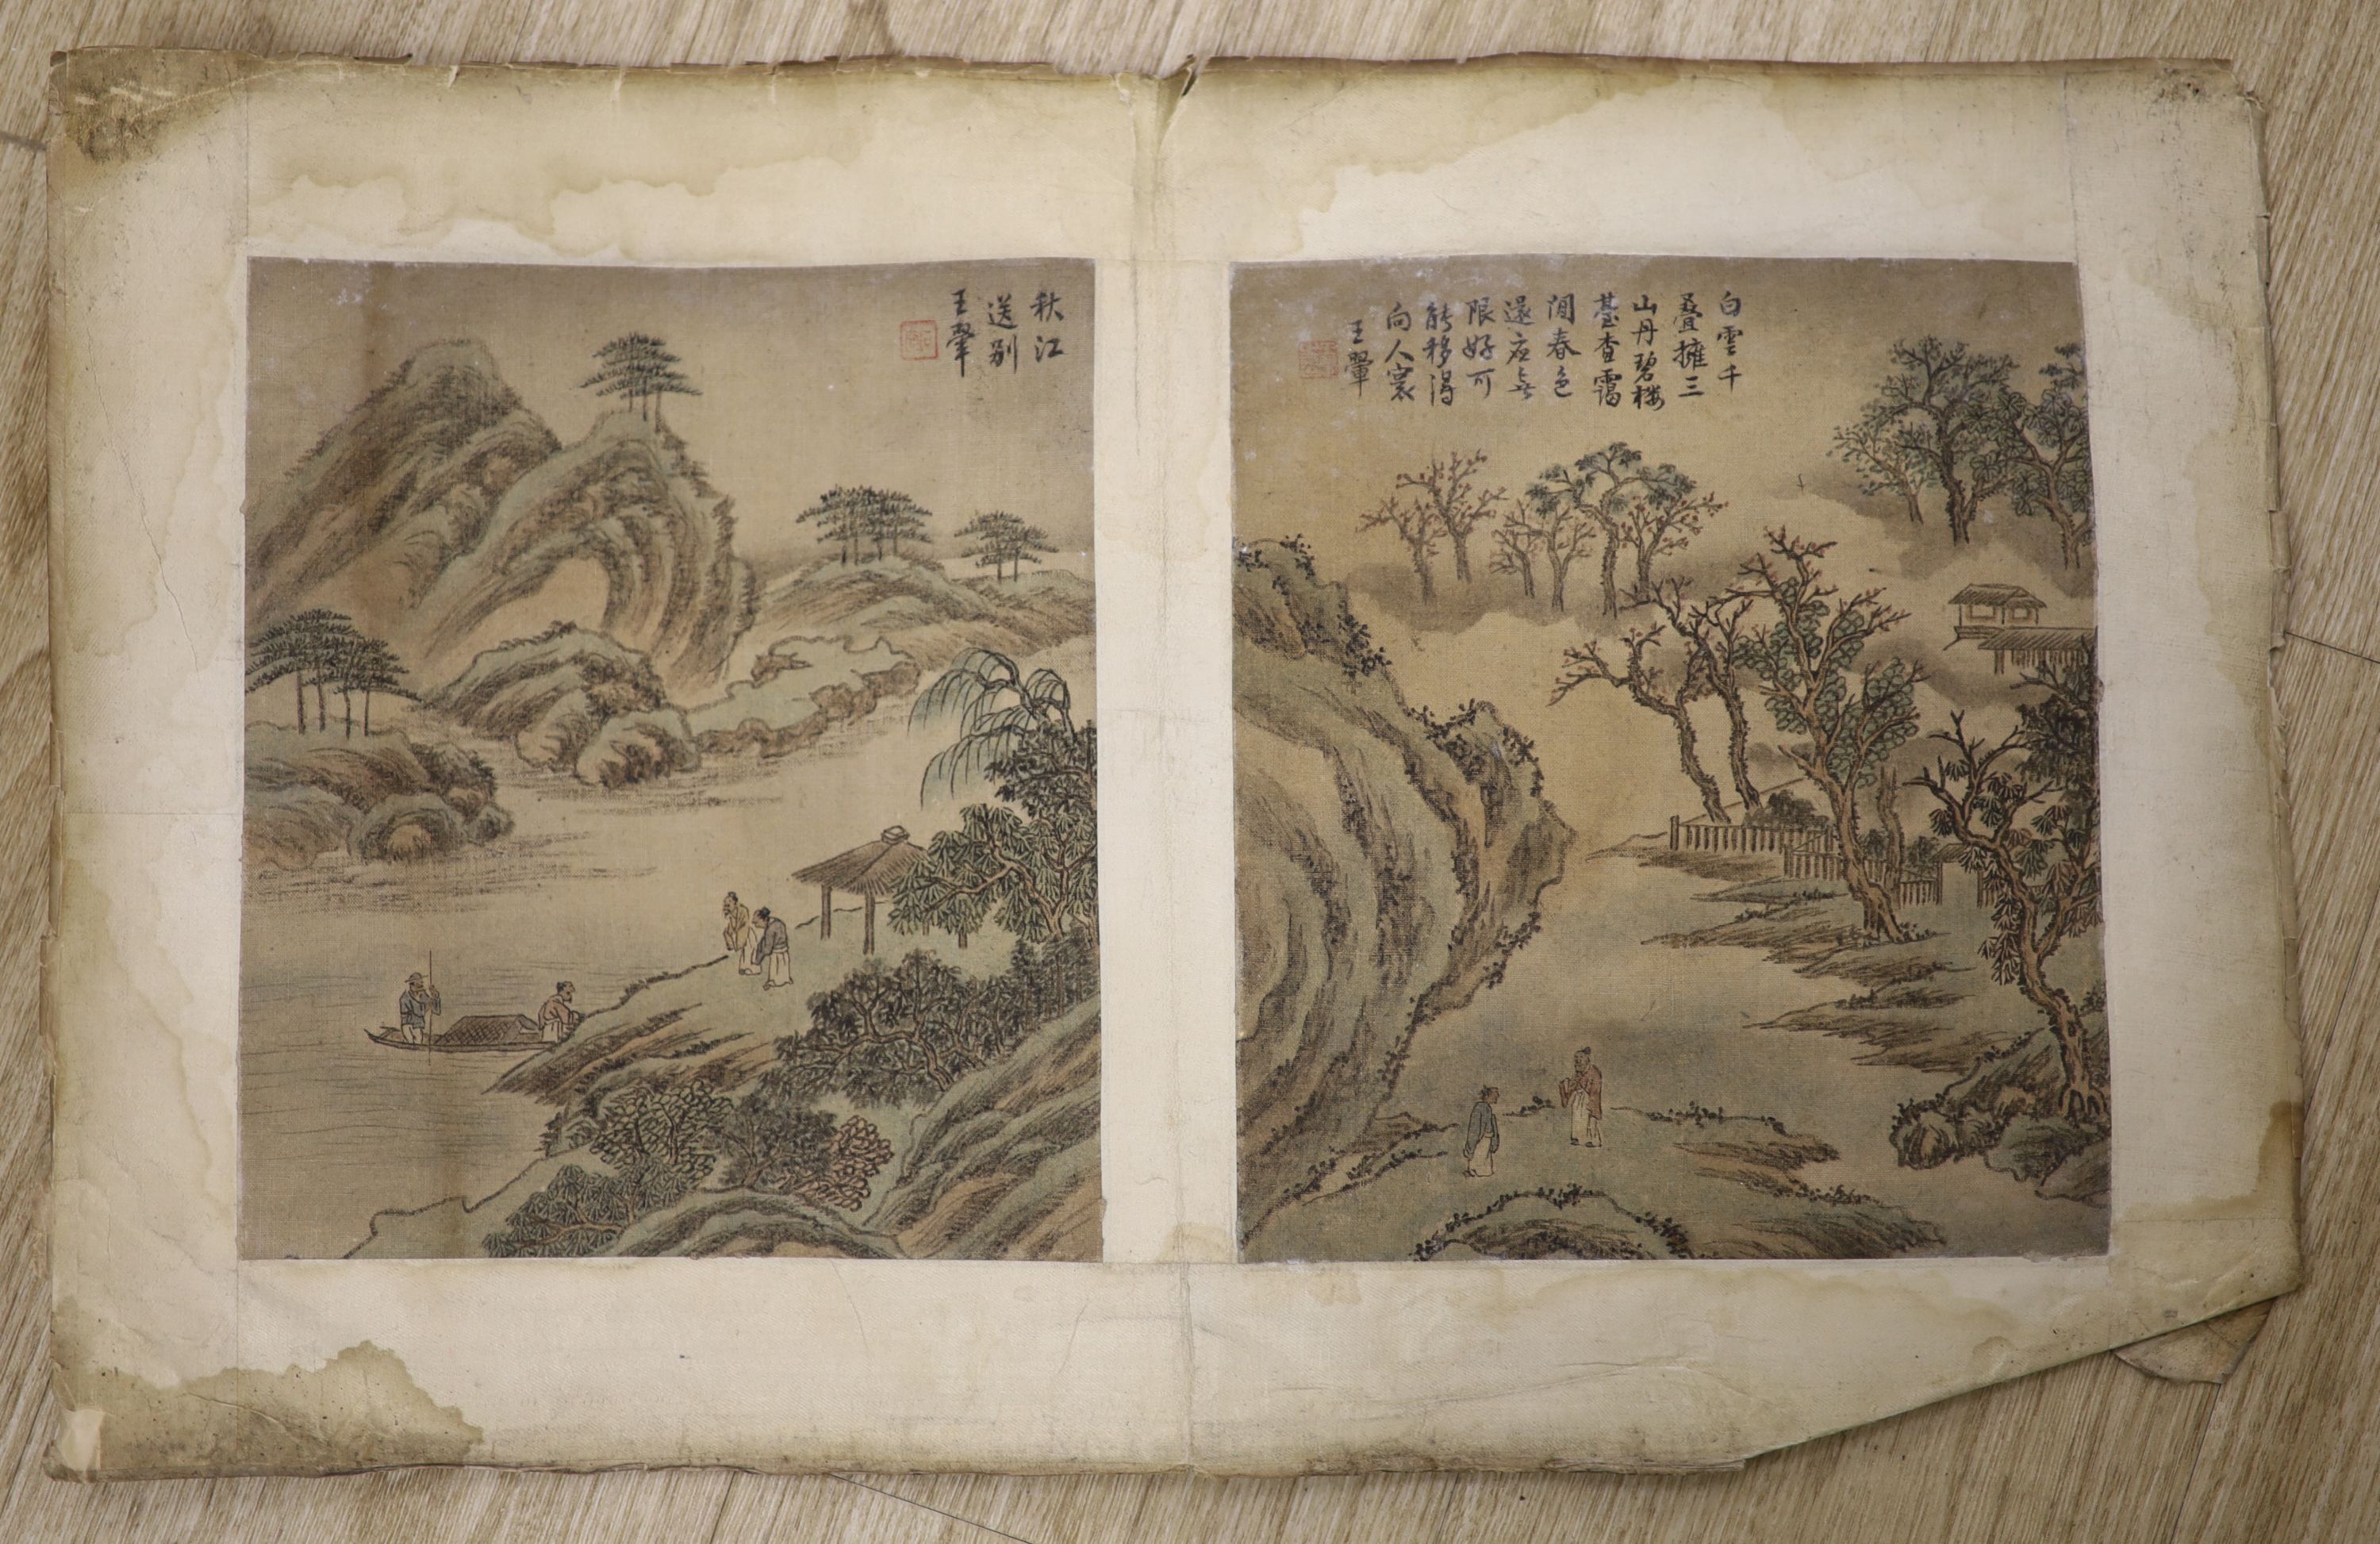 白雲千
叠擁三
山丹碧楼
臺杳靄
間春色
還应無
限好可
能移得
向人寰
王翬
秋江
送别
王翬